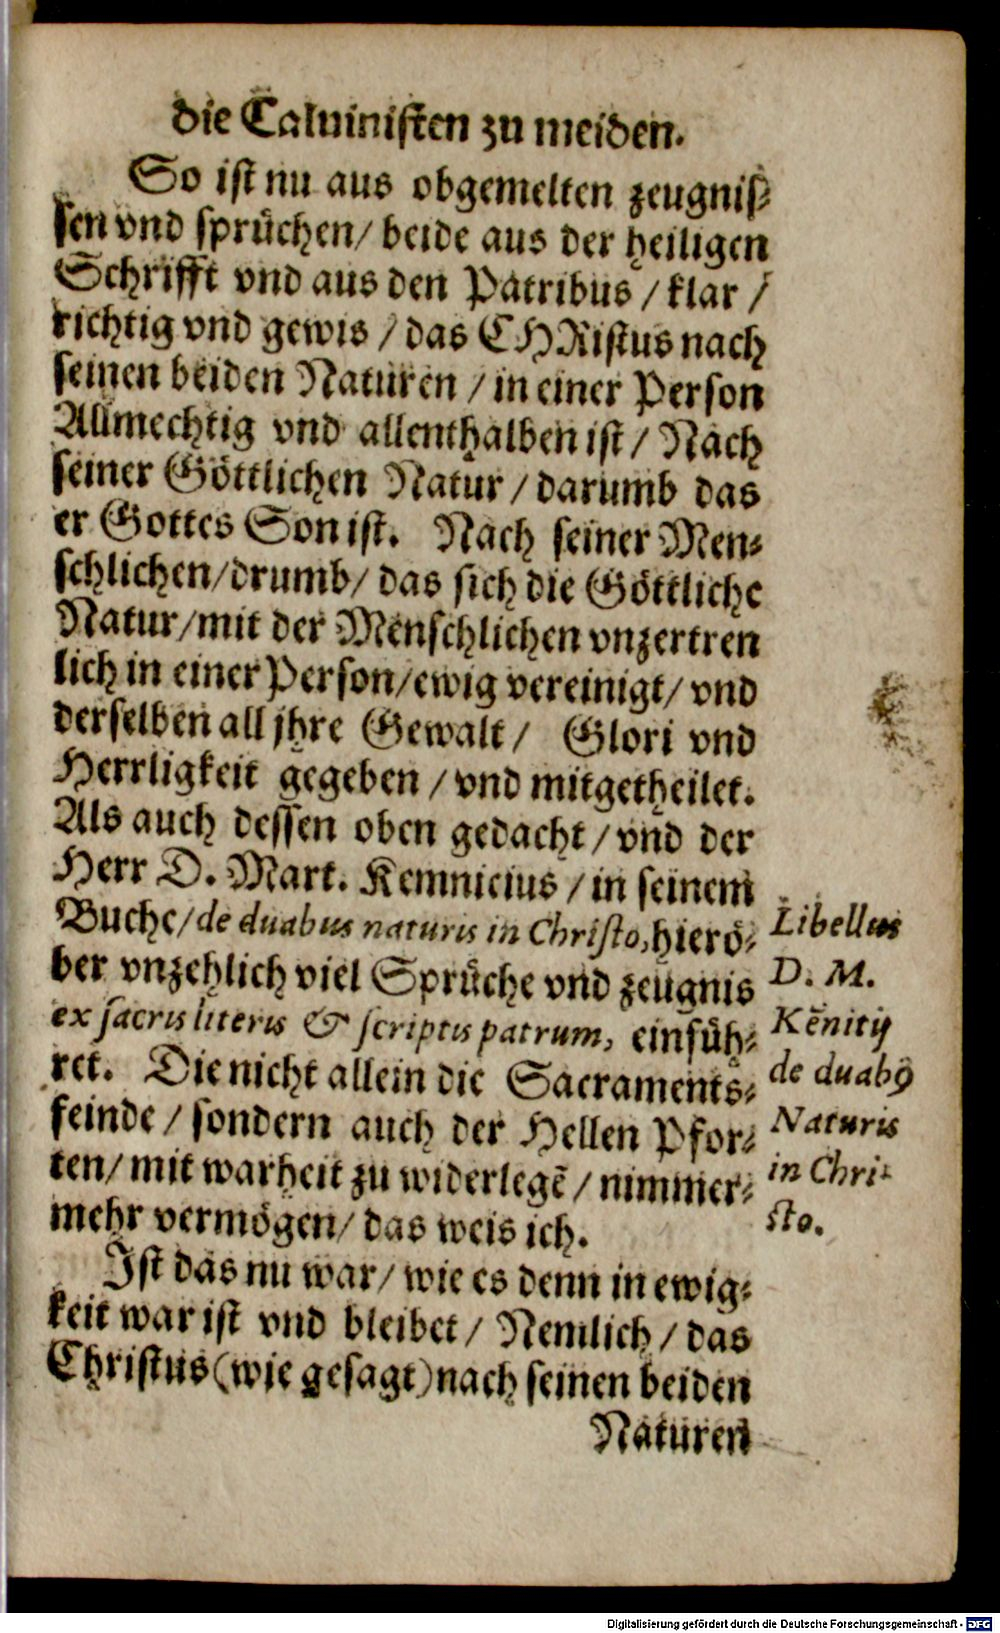 die Caluinisten zu meiden.
So ist nu aus obgemelten zeugnis⸗
sen vnd sprüchen/ beide aus der heiligen
Schrifft vnd aus den Patribus / klar /
richtig vnd gewis / das CHRistus nach
seinen beiden Naturen / in einer Person
Allmechtig vnd allenthalben ist / Nach
seiner Göttlichen Natur / darumb das
er Gottes Son ist. Nach seiner Men⸗
schlichen/drumb/ das sich die Göttliche
Natur/mit der Menschlichen vnzertren
lich in einer Person/ewig vereinigt/ vnd
derselben all jhre Gewalt / Glori vnd
Herrligkeit gegeben / vnd mitgetheilet.
Als auch dessen oben gedacht / vnd der
Herr D. Mart. Kemnicius / in seinem
Buche/de duabus naturis in Christo, hierö⸗
ber vnzehlich viel Sprüche vnd zeugnis
ex sacris literis & scriptis patrum, einfüh⸗
ret. Die nicht allein die Sacraments⸗
feinde / sondern auch der Hellen Pfor⸗
ten/ mit warheit zu widerlegē / nimmer⸗
mehr vermögen/ das weis ich.
Ist das nu war/ wie es denn in ewig⸗
keit war ist vnd bleibet / Nemlich / das
Christus (wie gesagt) nach seinen beiden
Naturen
Libellus
D. M.
Kēnitij
de duabꝰ
Naturis
in Chri⸗
sto.
Digitalisierung gefördert durch die Deutsche Forschungsgemeinschaft - DFG